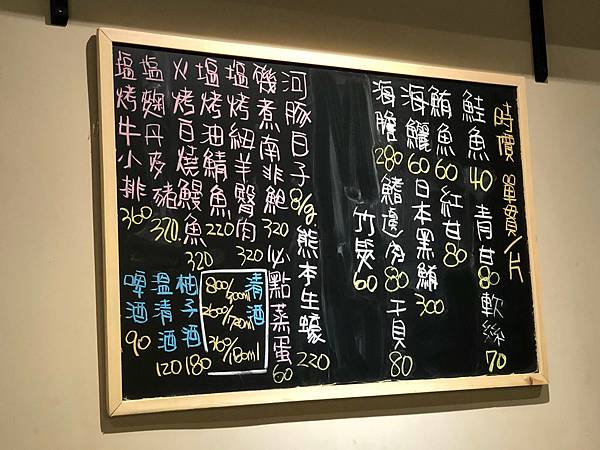 時價 單貫/片
鮭魚 40 青甘 80 軟絲 70
鮪魚 60 紅甘 80
海鱺 60 日本黑鮪 300
海膽 280 鰭邊肉 80 干貝 80
竹筴 60
河豚白子 81g 熊本生蠔 220
磯煮南非鮑 320 必點蒸蛋 60
塩烤紐羊臀肉 320
塩烤油鯖魚 220
火烤白燒鰻魚 320
塩麴丹麥豬 320.
塩烤牛小排 360
清酒
800/900ml
260/720ml
360/180ml
柚子酒 180
溫清酒 120
啤酒 90